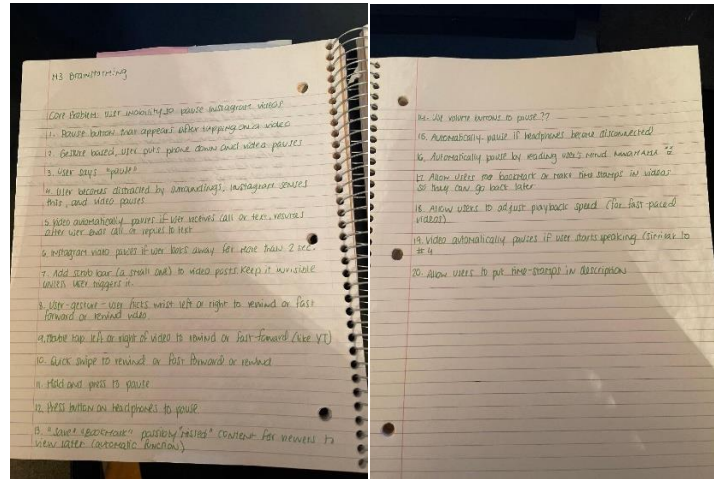 M3 Brainstorming
Core Problem: user inability to pause instagram videos
1. Pause button that appears after tapping on a video
2. Gesture based, user puts phone down and video pauses
3. User says "pause"
4. User becomes distracted by surroundings, instagram senses
this, and video pauses
5. Video automatically pauses if user receives call or text, resumes
after user ends call or replies to text
6. Instagram video pauses if user looks away for more than 2 sec.
7. Add scrub bar (a small one) to video posts. Keep it invisible
unless user triggers it.
8. User-gesture - user flicks wrist left or right to rewind or fast
forward or rewind video
9. Maybe tap left or right of video to rewind or fast-forward (like YT)
10. Quick swipe to rewind or fast forward or rewind
11. Hold and press to pause
12. Press button on headphones to pause
13. "Save" "Bookmark" possibly "missed" content for viewers to
view later (automatic function)
14. Use volume buttons to pause??
15. Automatically pause if headphones become disconnected
16. Automatically pause by reading user's mind
17. Allow users to bookmark or make time stamps in videos
so they can go back later
18. Allow users to adjust playback speed (for fast paced
videos)
19. Video automatically pauses if user starts speaking (similar to
#4
20. Allow users to put time-stamps in description